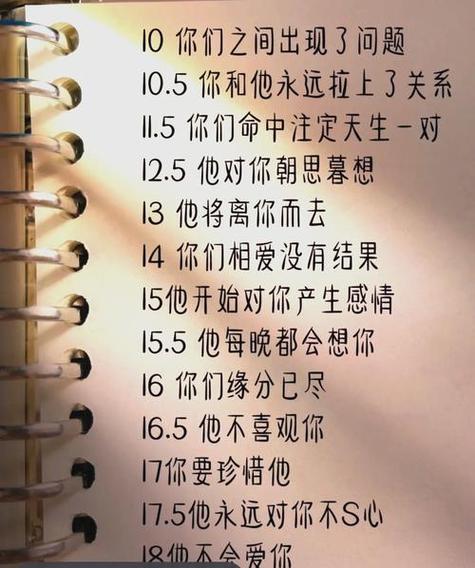 10 你们之间出现了问题
10.5 你和他永远拉上了关系
11.5 你们命中注定天生一对
12.5 他对你朝思暮想
13 他将离你而去
14 你们相爱没有结果
15他开始对你产生感情
15.5 他每晚都会想你
16 你们缘分已尽
16.5 他不喜观你
17你要珍惜他
17.5他永远对你不S心
18他不会爱你